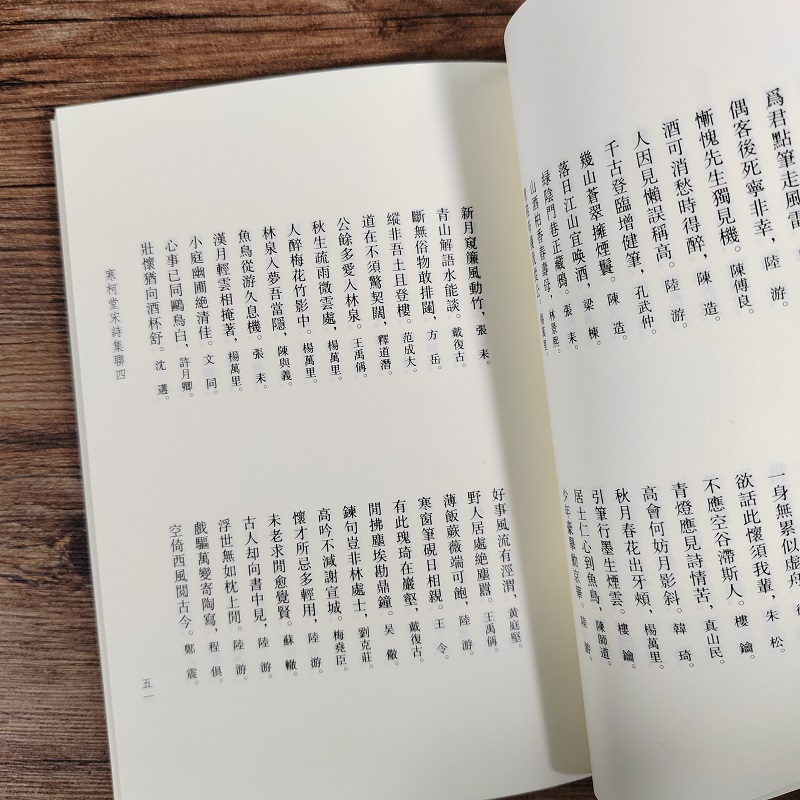 爲君點筆走風
偶客後死寧非幸，陸　游。
慚愧先生獨見機。陳傅良。
酒可消愁時得醉，陳　造。
人因見懶誤稱高。陸　游。
千古登臨增健筆，孔武仲。
幾山蒼翠擁煙鬟。陳　造。
落日江山宜喚酒，梁　棟。
綠陰門巷正藏鴉。張　耒。
山酒柏香春壽母，林景熙。
一身無累似虛舟。
欲話此懷須我輩，朱　松。
不應空谷滯斯人。樓　鑰。
青燈應見詩情苦，真山民。
高會何妨月影斜。韓　琦。
秋月春花出牙頰，楊萬里。
引筆行墨生煙雲。樓　鑰。
居士仁心到魚鳥，陳師道。
少年豪舉動京華。陸　游。
新月窺簾風動竹，張　耒。
青山解語水能談。戴復古。
斷無俗物敢排闥，方　岳。
縱非吾土且登樓。范成大。
道在不須驚契闊，釋道潛。
公餘多愛入林泉。王禹偁。
秋生疏雨微雲處，楊萬里。
人醉梅花竹影中。楊萬里。
林泉入夢吾當隱，陳與義。
魚鳥從游久息機。張　耒。
漢月輕雲相掩著，楊萬里。
小庭幽圃絶清佳。文　同。
心事已同鷗鳥白，許月卿。
壯懷猶向酒杯舒。沈　遘。
好事風流有涇渭，黃庭堅。
野人居處絶塵囂。王禹偁。
薄飯蕨薇端可飽，陸　游。
寒窗筆硯日相親。王　令。
有此瑰琦在巖壑，戴復古。
閒拂塵埃勘鼎鐘。吳　儆。
鍊句豈非林處士，劉克莊。
高吟不減謝宣城。梅堯臣。
懷才所忌多輕用，陸　游。
未老求閒愈覺賢。蘇　轍。
古人却向書中見，陸　游。
浮世無如枕上閒。陸　游。
戲驅萬變寄陶寫，程　俱。
空倚西風閱古今。鄭　震。
寒柯堂宋詩集聯四
五一